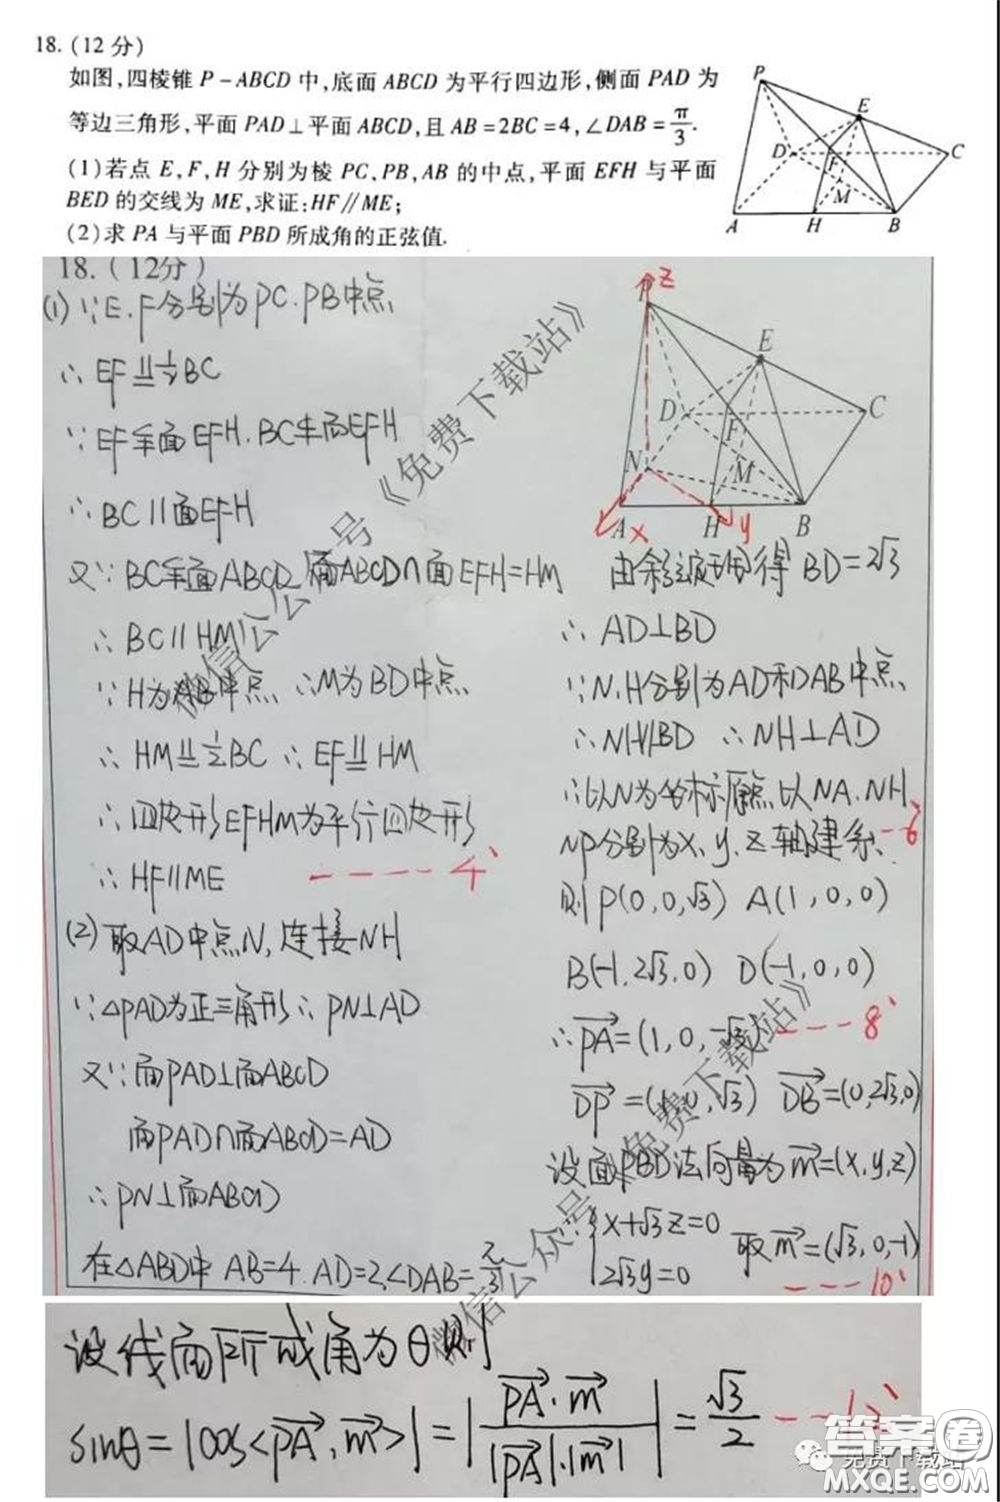 18. (12 分)
如图,四棱锥 P-ABCD 中,底面 ABCD 为平行四边形,侧面 PAD 为
等边三角形,平面 PAD⊥平面 ABCD,且 AB=2BC=4,∠DAB=π/3.
(1)若点 E,F,H 分别为棱 PC,PB,AB 的中点,平面 EFH 与平面
BED 的交线为 ME,求证:HF∥ME;
(2)求 PA 与平面 PBD 所成角的正弦值.
P
E
D
C
F
M
A
H
B
18.(12分)
(1) ∵E.F分别为PC.PB中点
∴ EF∥=½BC
∵ EF⊂面EFH.BC⊄面EFH
∴ BC∥面EFH
又∵ BC⊂面ABCD 面ABCD∩面EFH=HM
∴ BC∥HM
∵ H为AB中点 ∴M为BD中点
∴ HM∥=½BC ∴ EF∥=HM
∴ 四边形EFHM为平行四边形
∴ HF∥ME ----4'
(2) 取AD中点N,连接NH
∵△PAD为正三角形∴ PN⊥AD
又∵面PAD⊥面ABCD
面PAD∩面ABCD=AD
∴PN⊥面ABCD
在△ABD中 AB=4.AD=2,∠DAB=π/3
z
P
E
D
C
F
N
M
A
x
H
y
B
由余弦定理得 BD=2√3
∴ AD⊥BD
∵N.H分别为AD和AB中点
∴NH∥BD ∴NH⊥AD
∴以N为坐标原点以NA.NH.
NP分别为x.y.z轴建系. --6'
则P(0,0,√3) A(1,0,0)
B(-1,2√3,0) D(-1,0,0)
∴PA=(1,0,-√3) ---8'
DP=(1,0,√3) DB=(0,2√3,0)
设面PBD法向量为m=(x,y,z)
∴{x+√3z=0
2√3y=0 取m=(√3,0,-1)
----10'
设线面所成角为θ则
sinθ=|cos<PA,m>|=|PA·m/|PA|·|m||=√3/2 ---12'
《免费下载站》
微信公众号
微信公众号《免费下载站》
免费下载站
答案圈
MXQE.COM